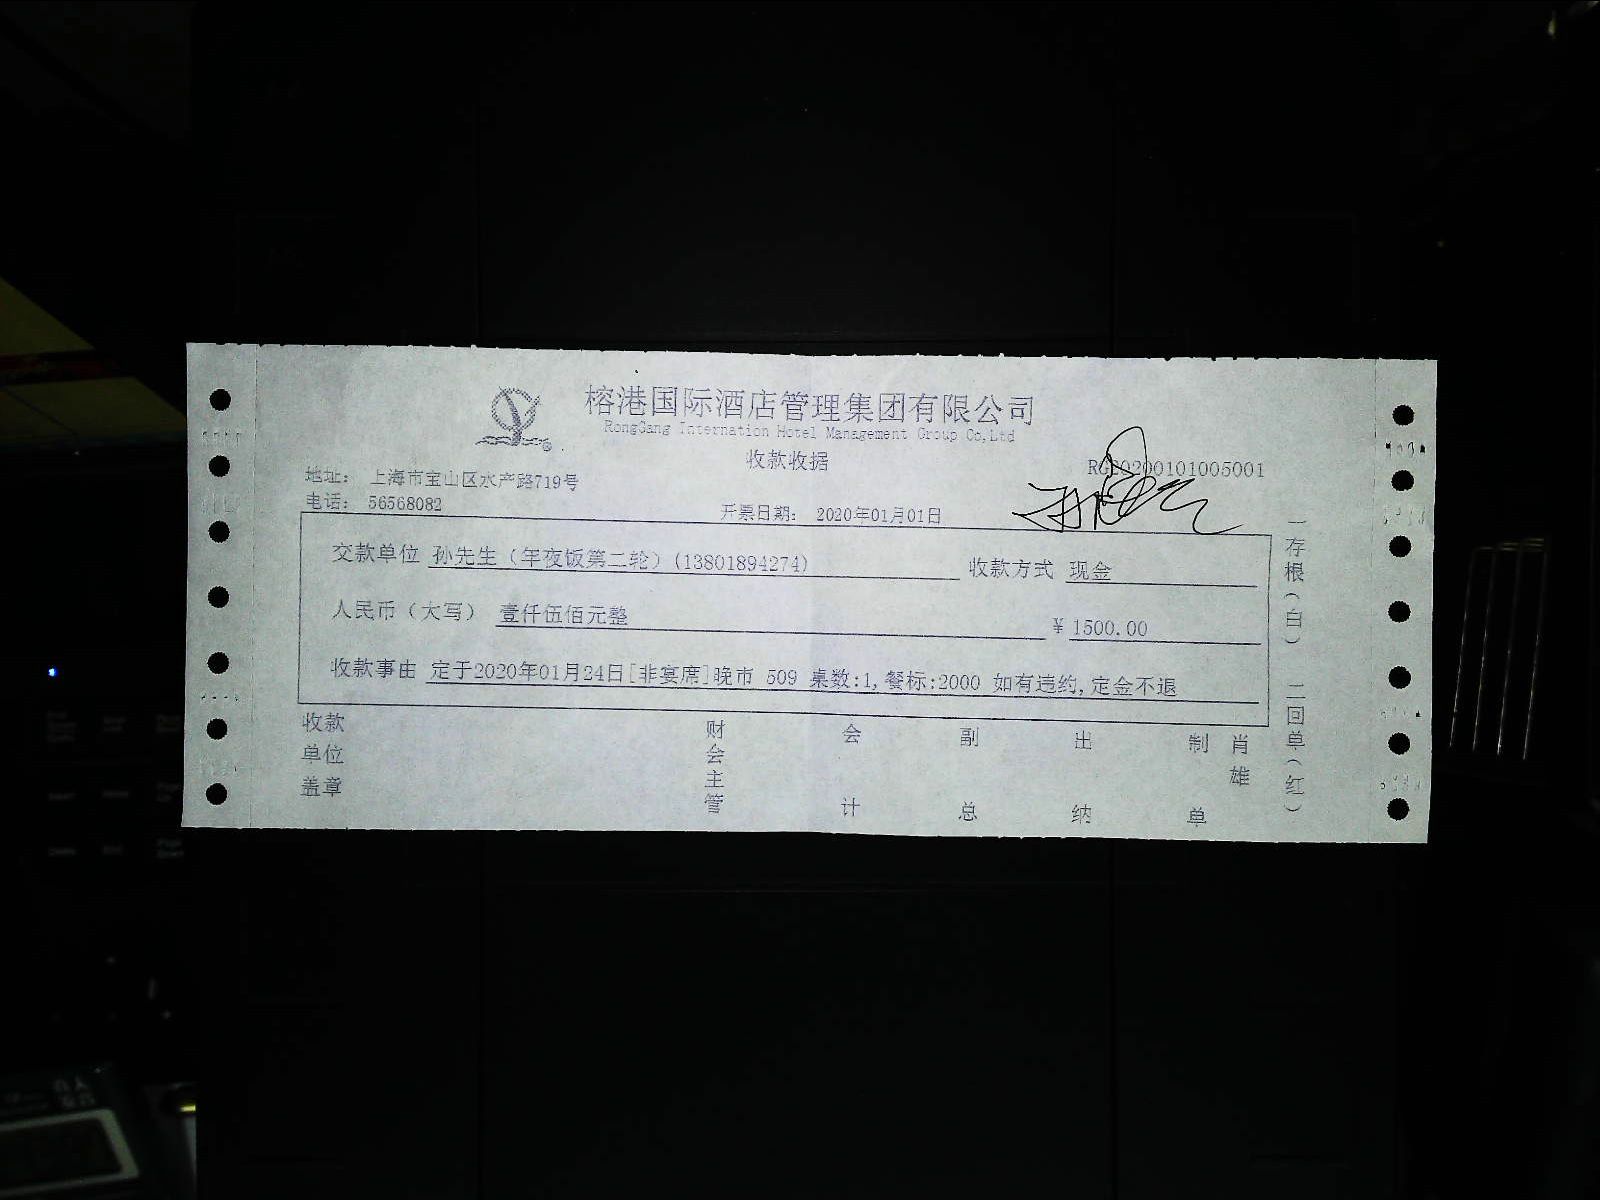 榕港国际酒店管理集团有限公司
RongGang Internation Hotel Management Group Co,Ltd
收款收据
RG20200101005001
地址： 上海市宝山区水产路719号
电话： 56568082
开票日期： 2020年01月01日
交款单位 孙先生（年夜饭第二轮）(13801894274) 收款方式 现金
人民币（大写） 壹仟伍佰元整 ¥ 1500.00
收款事由 定于2020年01月24日[非宴席]晚市 509 桌数:1,餐标:2000 如有违约,定金不退
收款单位盖章 财会主管 会计 副总 出纳 制单 肖雄
一存根（白） 二回单（红）